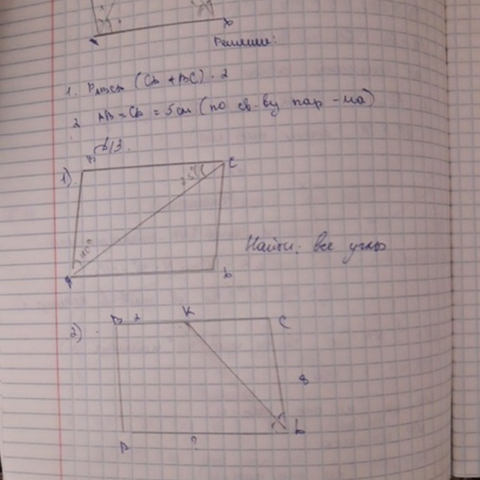 Решение:
1. PABCD (CD + BC) · 2
2 AB = CD = 5 см (по св-ву пар-ма)
Д/З.
1).
B C
40°
A D
Найти: все углы
2)
B 2 K C
8
A ? D